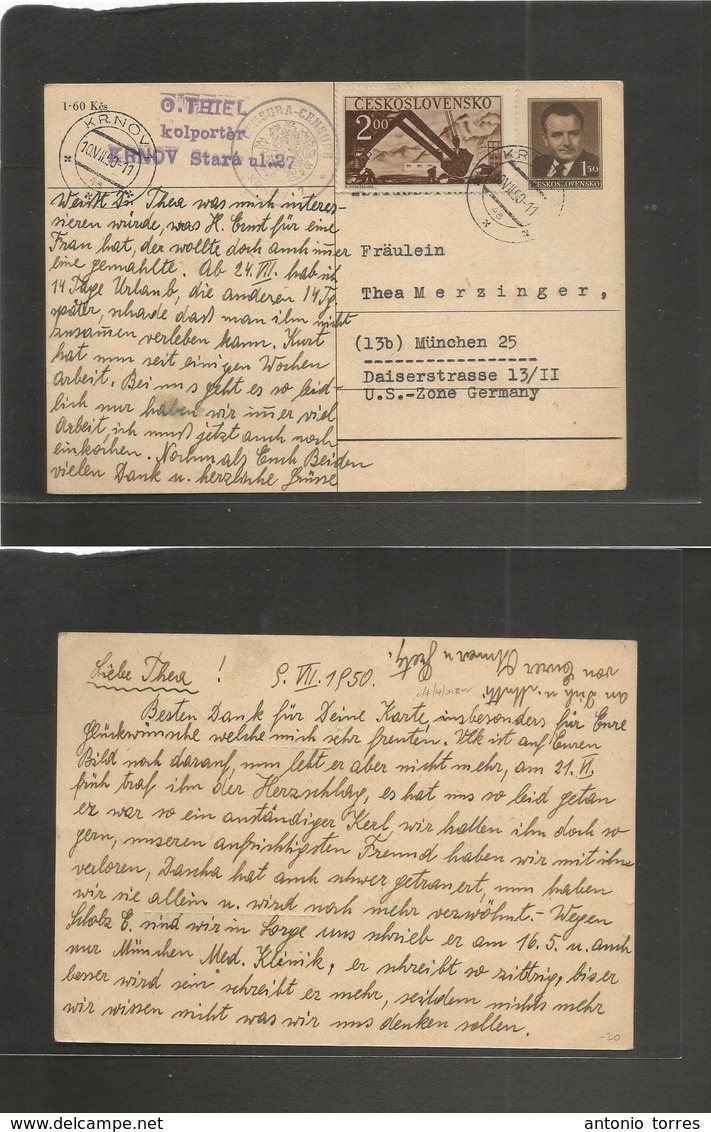 1·60 Kčs
O. THIEL
kolportér
KRNOV Stará ul.27
CENSURA-CENSURE
KRNOV
10.VII.50-11
4a
ČESKOSLOVENSKO
2.00
KRNOV
10.VII.50-11
4a
1.50
ČESKOSLOVENSKO
Weißt Du Thea was mich interes-
sieren würde, was H. Ernst für eine
Frau hat, der wollte doch auch immer
eine gemahlte. Ab 24. VII. hab ich
14 Tage Urlaub, die anderen 14 Tg.
später, schade daß man ihn nicht
zusammen verleben kann. Kurt
hat nun seit einigen Wochen
Arbeit. Bei uns geht es so leid-
lich nur haben wir immer viel
Arbeit, ich muß jetzt auch noch
einkochen. Nochmals Euch Beiden
vielen Dank u. herzliche Grüsse
Fräulein
Thea Merzinger,
(13b) München 25
Daiserstrasse 13/II
U.S.-Zone Germany
Liebe Thea ! 9. VII. 1950.
an Dich u. Mutti
von Eurer
Besten Dank für Deine Karte, insbesonders für Eure
Glückwünsche welche mich sehr freuten. Vlk ist auf Euren
Bild noch darauf, nun lebt er aber nicht mehr, am 21. VI.
früh traf ihn der Herzschlag, es hat uns so leid getan
er war so ein anständiger Kerl, wir hatten ihn doch so
gern, unseren aufrichtigsten Freund haben wir mit ihm
verloren, Dascha hat auch schwer getrauert, nun haben
wir sie allein u. wird noch mehr verwöhnt.- Wegen
Scholz E. sind wir in Sorge uns schrieb er am 16. 5. u. auch
nur München Med. Klinik, er schreibt so zittrig, bis er
besser wird sein schreibt er mehr, seitdem nichts mehr
wir wissen nicht was wir uns denken sollen.
-20
antonio torres